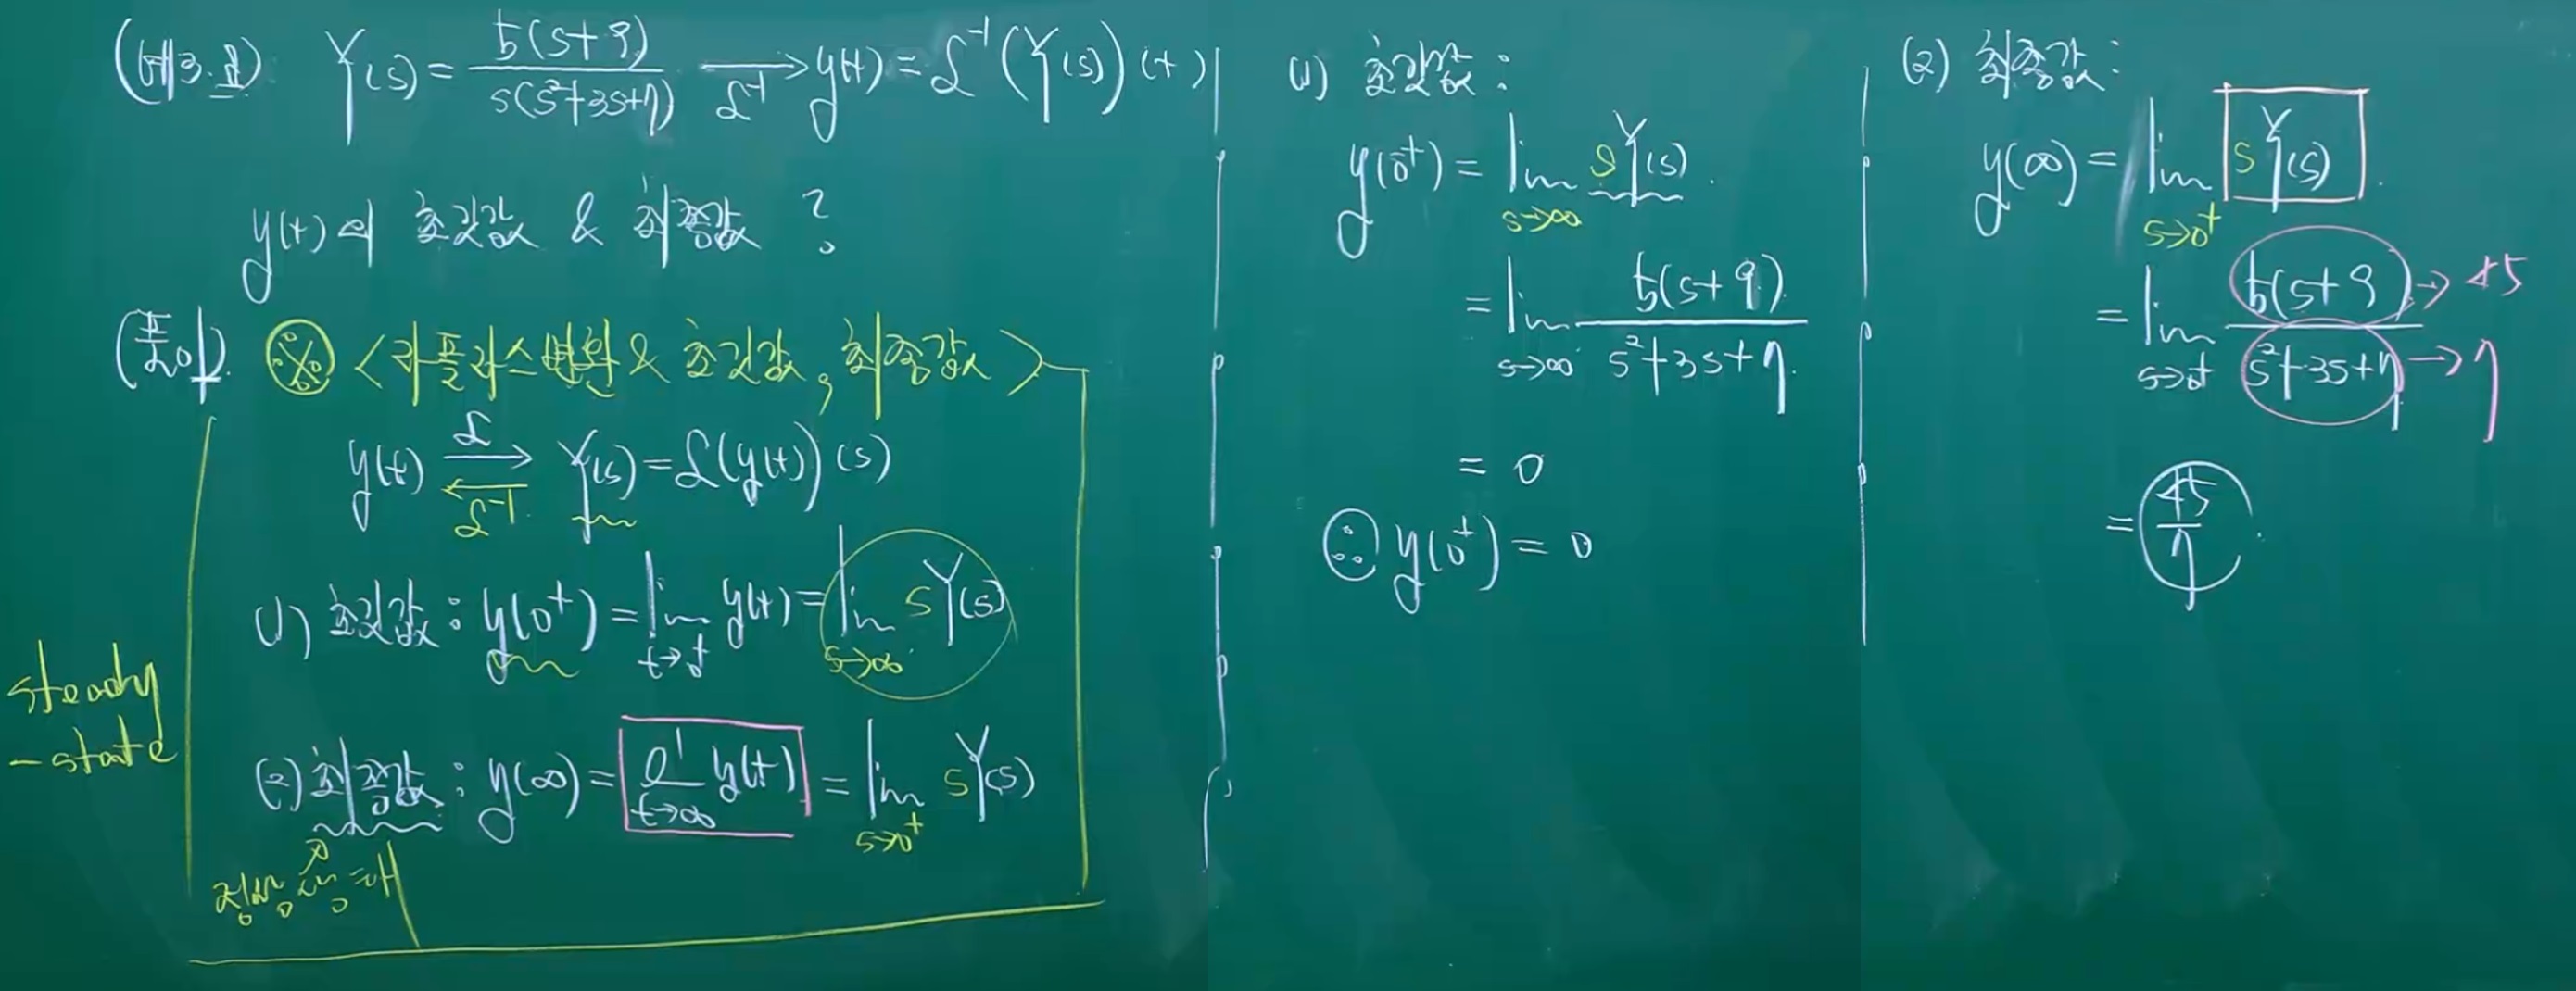 (예3.고) Y(s) = 5(s+9) / s(s²+3s+7) → ℒ⁻¹ y(t) = ℒ⁻¹(Y(s))(t)
y(t)의 초깃값 & 최종값 ?
(풀이) ※ <라플라스변환 & 초깃값, 최종값>
y(t) ⇄ Y(s) = ℒ(y(t))(s)
ℒ
ℒ⁻¹
(1) 초깃값 : y(0⁺) = lim t→0⁺ y(t) = lim s→∞ sY(s)
steady
-state
(2) 최종값 : y(∞) = lim t→∞ y(t) = lim s→0⁺ sY(s)
정상상태
(1) 초깃값 :
y(0⁺) = lim s→∞ sY(s).
= lim s→∞ 5(s+9) / s²+3s+7.
= 0
∴ y(0⁺) = 0
(2) 최종값 :
y(∞) = lim s→0⁺ sY(s).
= lim s→0⁺ 5(s+9) / s²+3s+7
→ 45
→ 7
= 45/7.